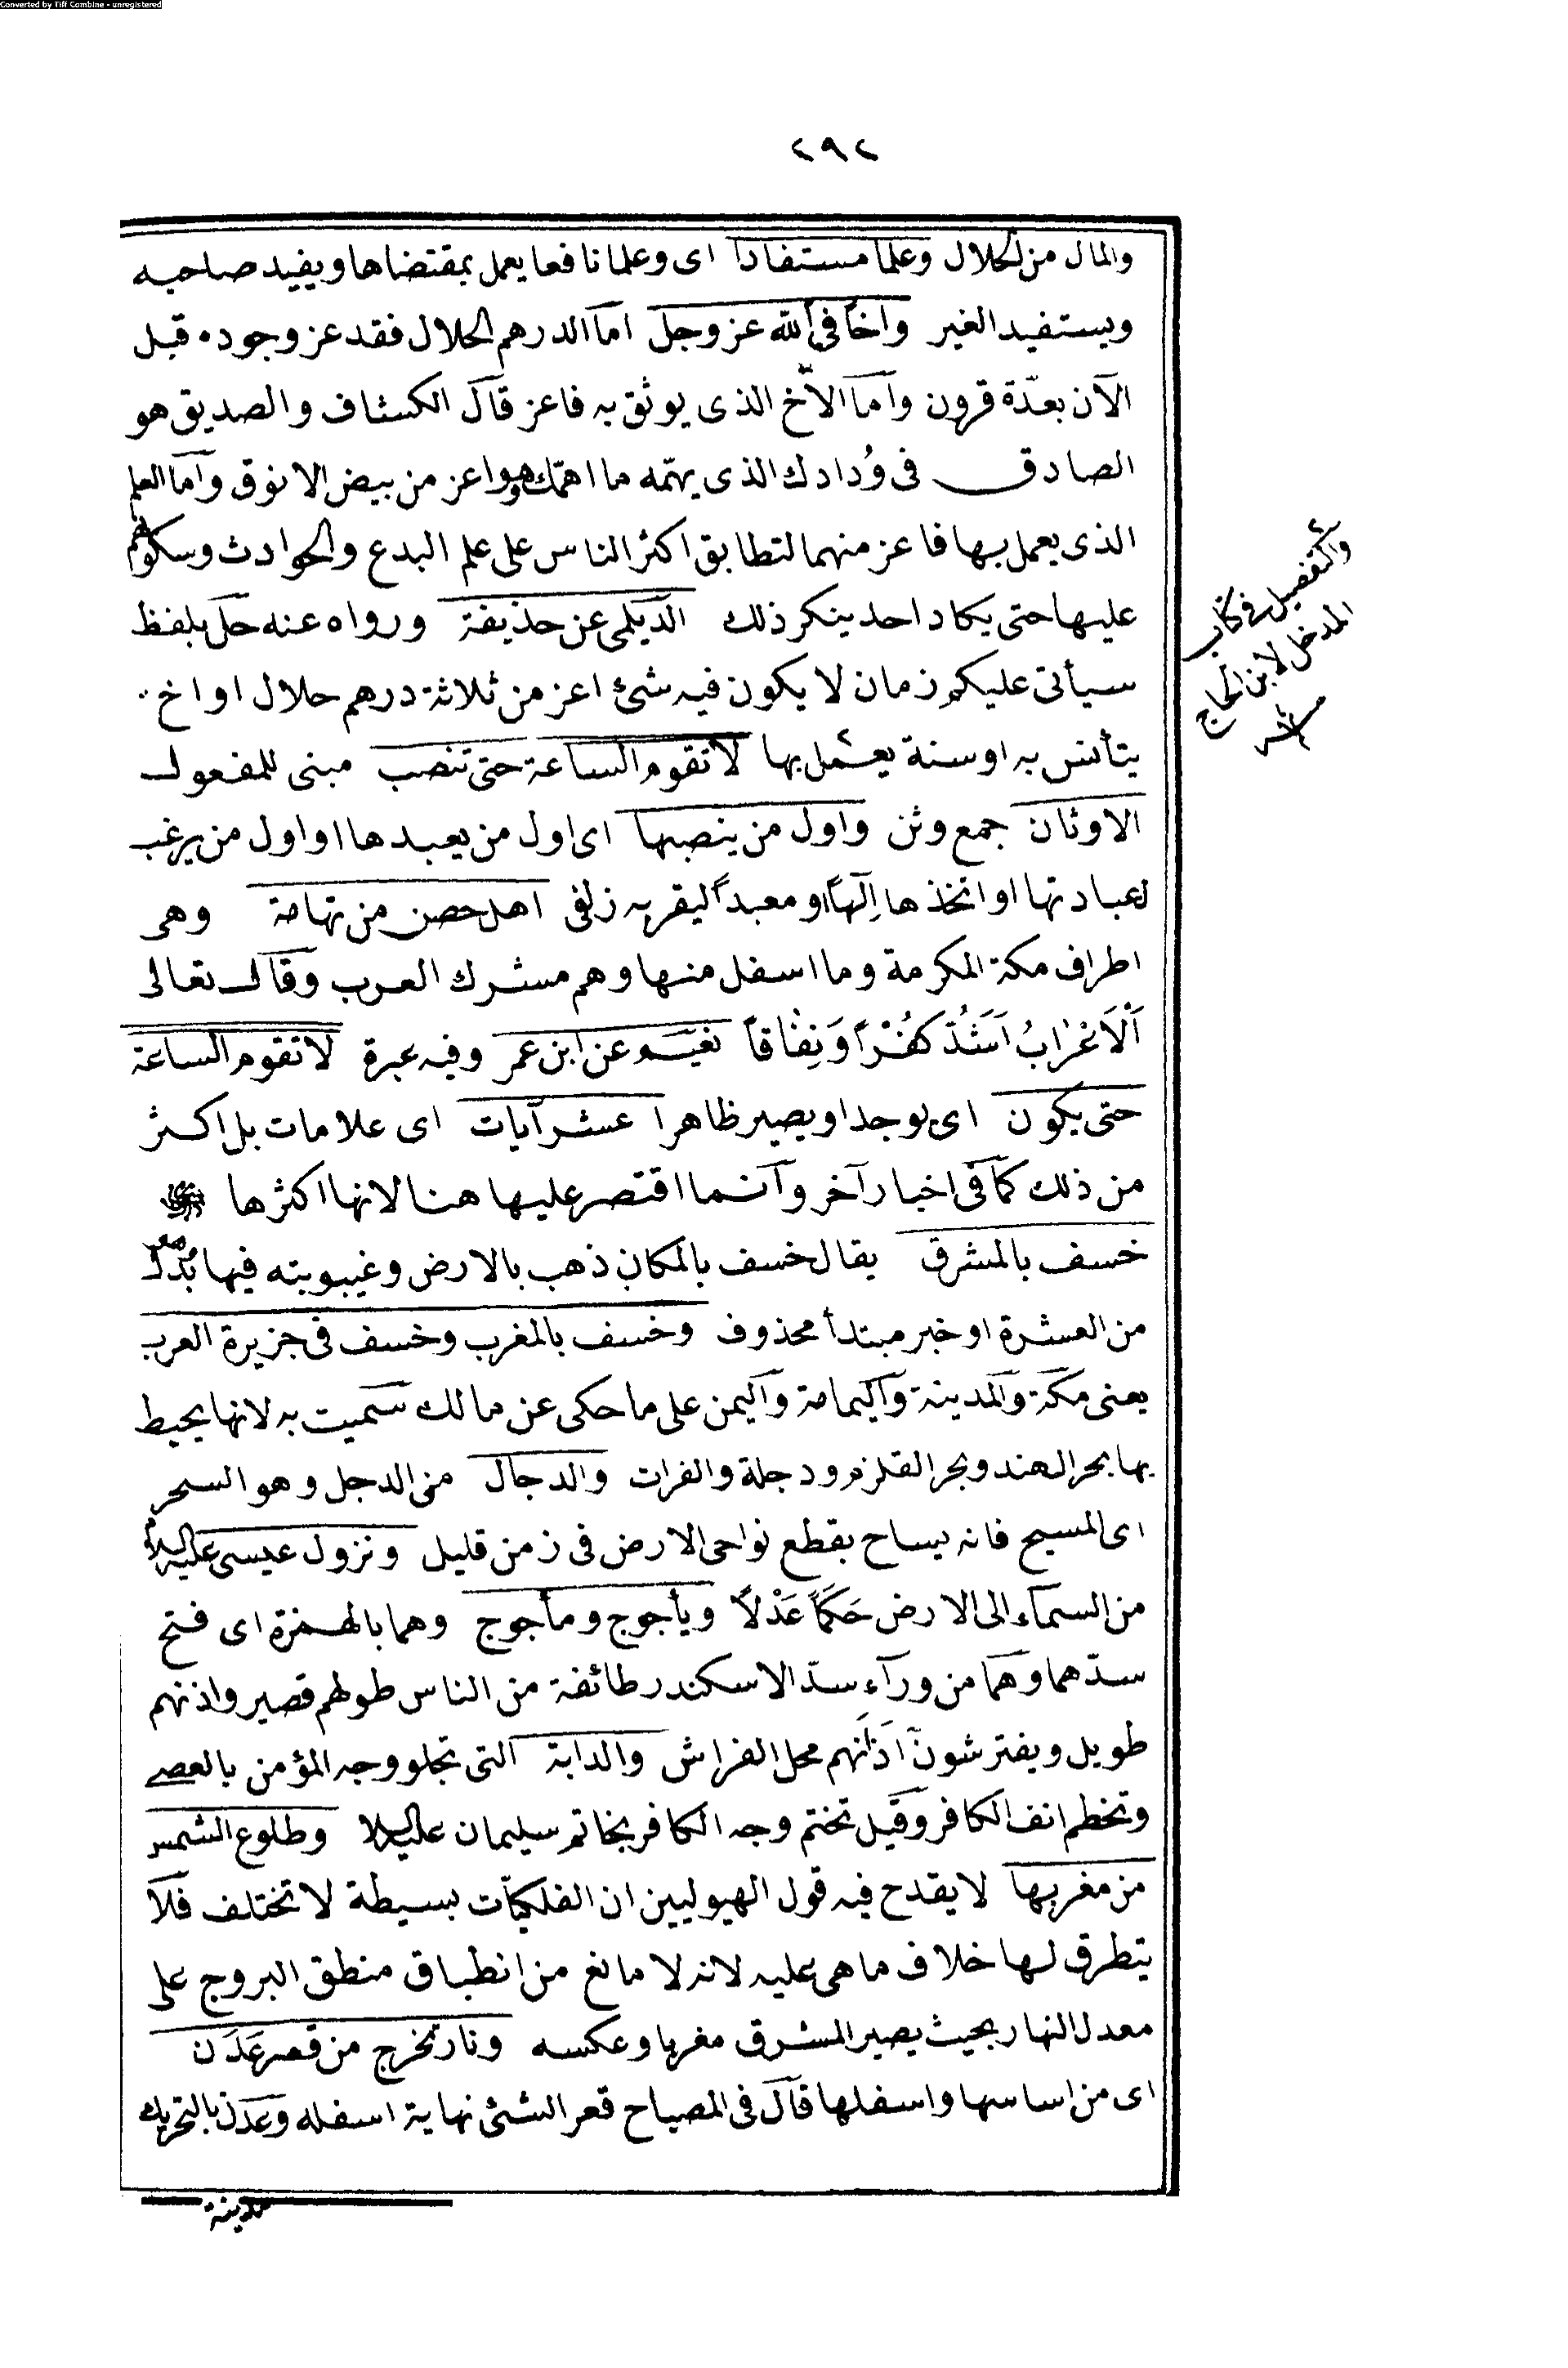 Converted by Tiff Combine - unregistered
٢٩٢
والمال من الحلال وعلما مستفادا اى وعلما نافعا يعمل بمقتضاها ويفيد صاحبه
ويستفيد الغير واخاً فى الله عز وجل اما الدرهم الحلال فقد عز وجوده قبل
الآن بعدّة قرون وآما الأخ الذى يوثق به فاعز قال الكشاف والصديق هو
الصادق فى وُدادك الذى يهمّه ما اهمّك وهو اعز من بيض الانوق وآما العلم
الذى يعمل بها فاعز منهما لتطابق اكثر الناس على علم البدع والحوادث وسكوتهم
عليها حتى يكاد احد ينكر ذلك الديلمى عن حذيفة ورواه عنه حل بلفظ
سيأتى عليكم زمان لا يكون فيه شئ اعز من ثلاثة درهم حلال او اخ
يتأنس به او سنة يعمل بها لا تقوم الساعة حتى تنصب مبنى للمفعول
الاوثان جمع وثن واول من ينصبها اى اول من يعبدها او اول من يرغب
لعبادتها او اتخذها اِلٰهاً او معبداً ليقربه زلفى اهل حصن من تهامة وهى
اطراف مكة المكرمة وما اسفل منها وهم مشرك العرب وقال تعالى
اَلْاَعْرَابُ اَشَدُّ كُفْرًا وَنِفَاقاً نعيم عن ابن عمر وفيه عبرة لا تقوم الساعة
حتى يكون اى يوجد او يصير ظاهرا عشر آيات اى علامات بل اكثر
من ذلك كما فى اخبار آخر وآنما اقتصر عليها هنا لانها اكثرها
خسف بالمشرق يقال خسف بالمكان ذهب بالارض وغيبوبته فيها بدل
من العشرة او خبر مبتدأ محذوف وخسف بالمغرب وخسف فى جزيرة العرب
يعنى مكة والمدينة واليمامة واليمن على ما حكى عن مالك سميت به لانها يحيط
بها بحر الهند وبحر القلزم ودجلة والفرات والدجال من الدجل وهو السحر
اى المسيح فانه يساح بقطع نواحى الارض فى زمن قليل ونزول عيسى عليه السلام
من السماء الى الارض حَكَماً عَدْلاً ويأجوج ومأجوج وهما بالهمزة اى فتح
سدّهما وهما من ورآء سدّ الاسكندر طائفة من الناس طولهم قصير واذنهم
طويل ويفترشون آذانهم محل الفراش والدابة التى تجلو وجه المؤمن بالعصى
وتخطم انف الكافر وقيل تختم وجه الكافر بخاتم سليمان عليه السلام وطلوع الشمس
من مغربها لا يقدح فيه قول الهيوليين ان الفلكيّات بسيطة لا تختلف فلا
يتطرق لها خلاف ما هى عليه لانه لا مانع من انطباق منطق البروج على
معدل النهار بحيث يصير المشرق مغربا وعكسه ونار تخرج من قعر عَدَن
اى من اساسها واسفلها قال فى المصباح قعر الشئ نهاية اسفله وعدن بالتحريك
مدينة
والتفصيل فى كتاب
المدخل لابن الحاج